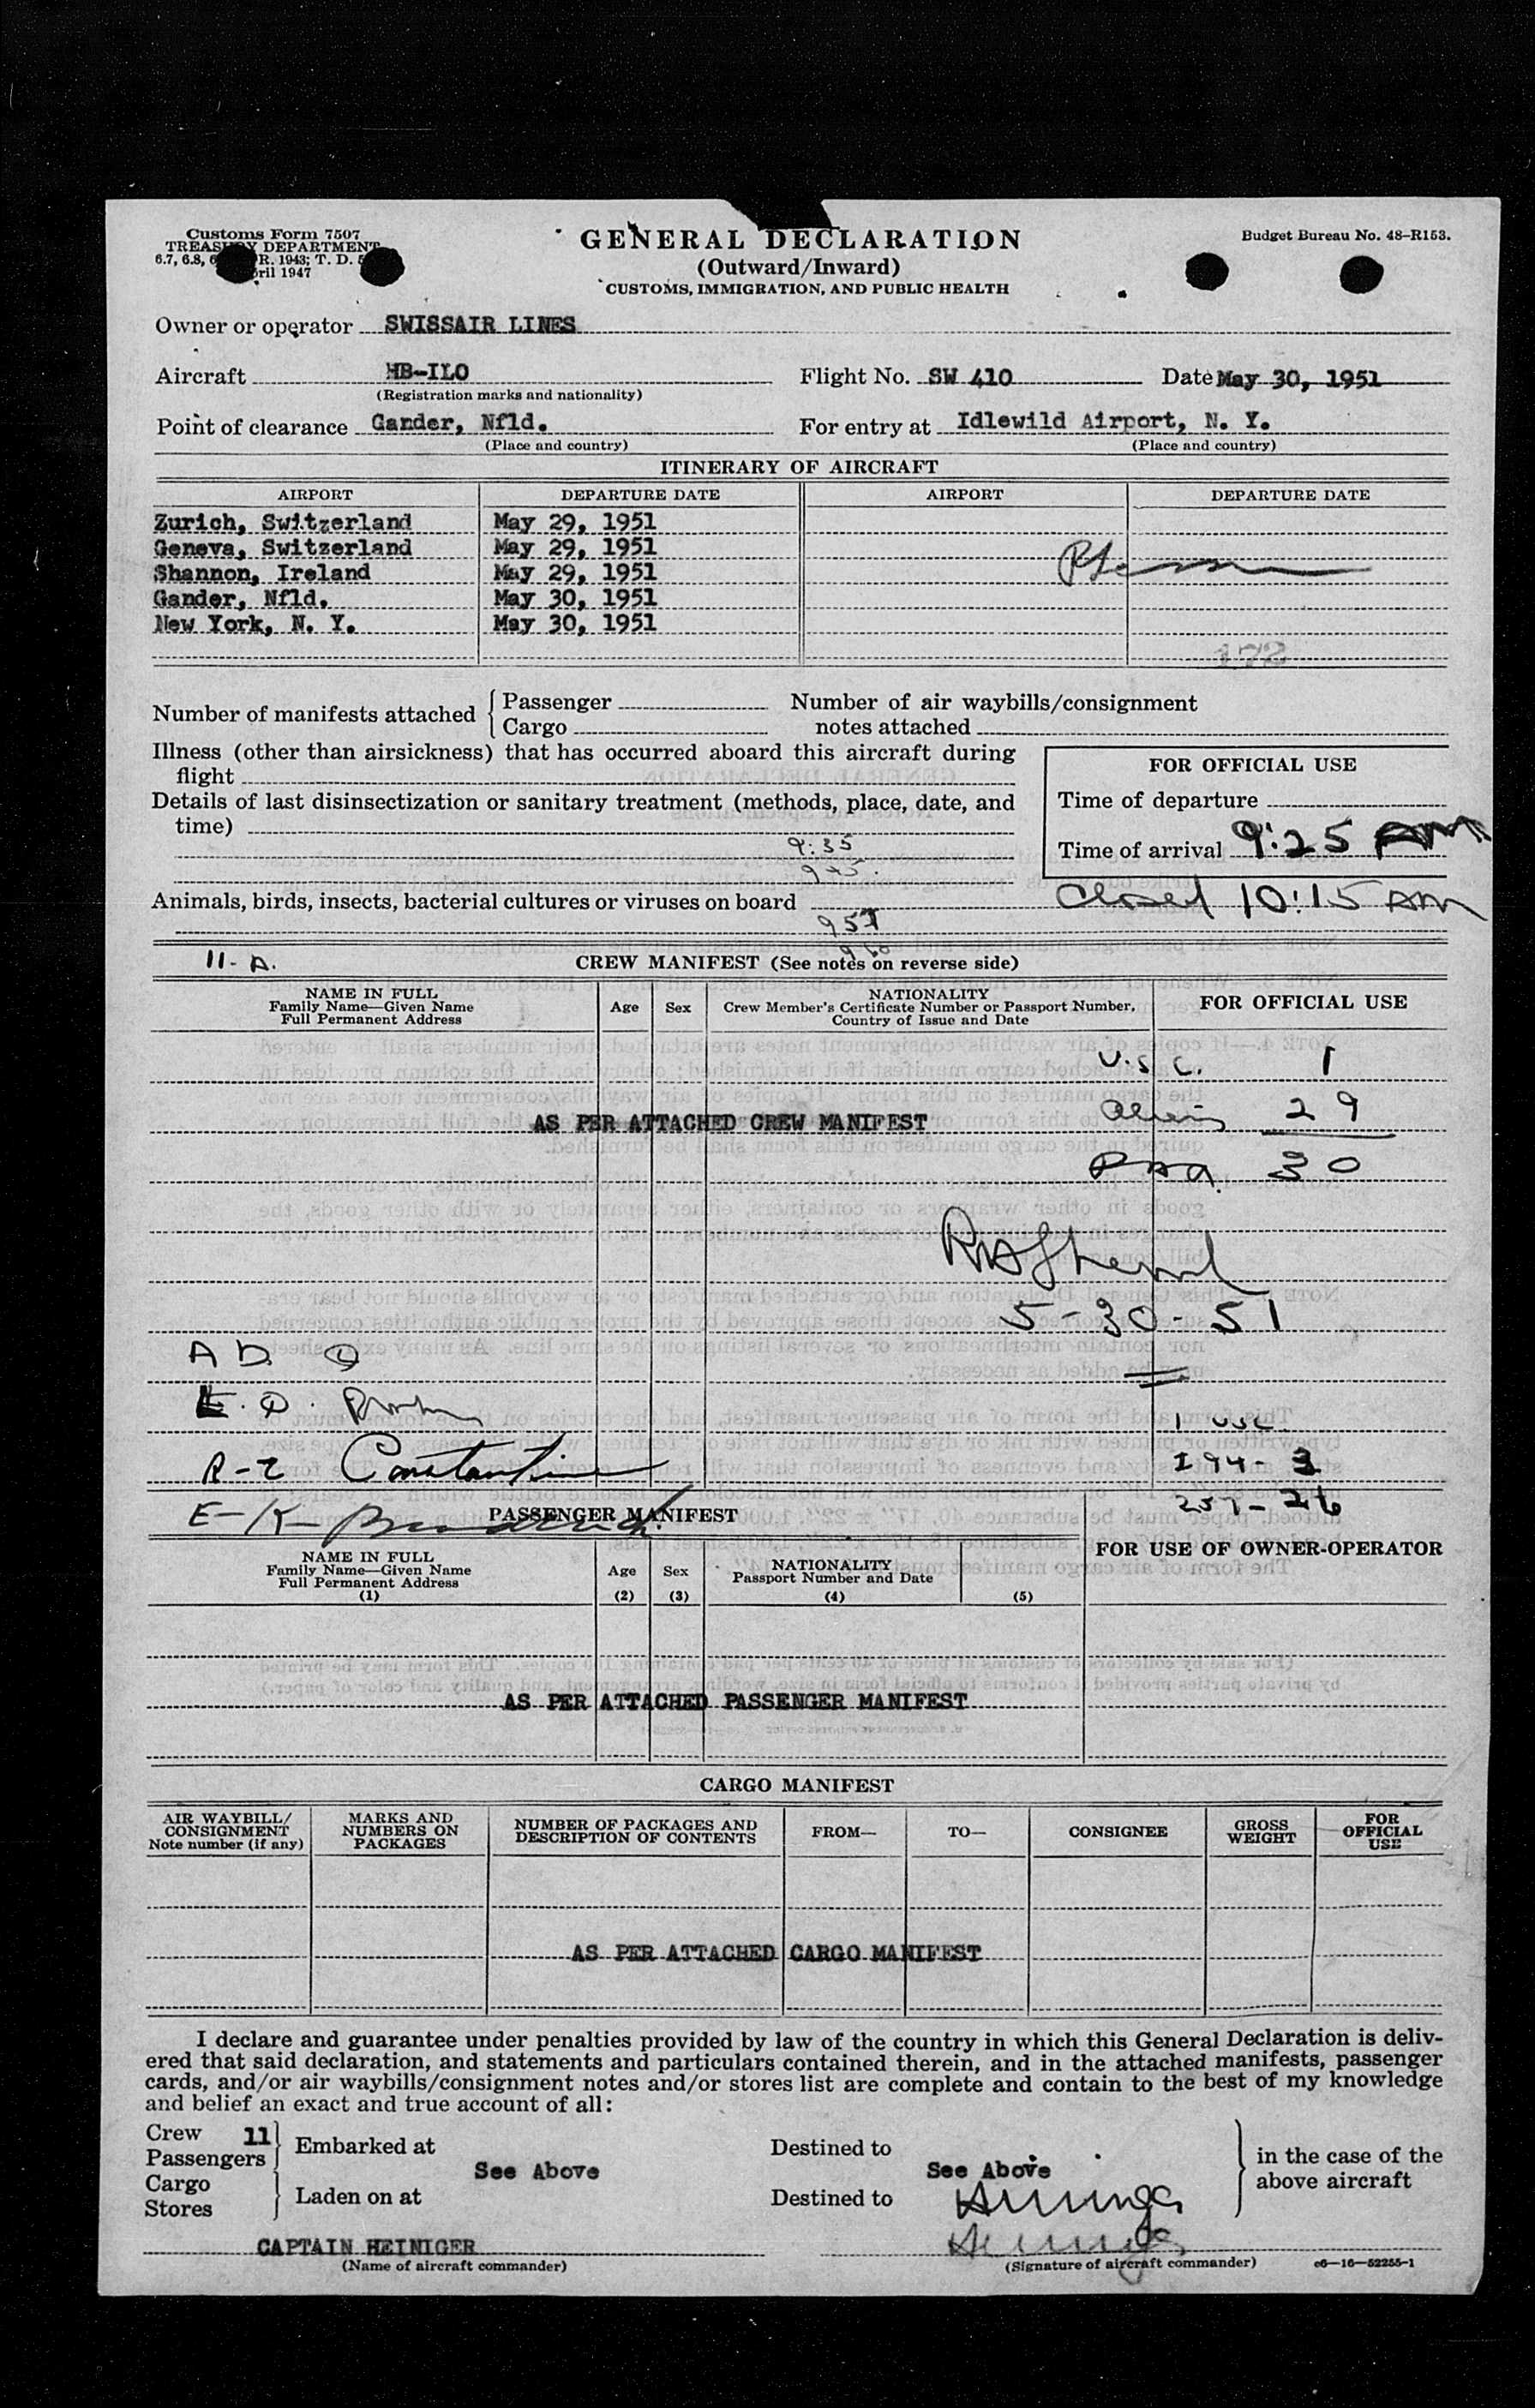 Customs Form 7507
TREASURY DEPARTMENT
6.7, 6.8, R. 1943; T. D.
April 1947
GENERAL DECLARATION
(Outward/Inward)
CUSTOMS, IMMIGRATION, AND PUBLIC HEALTH
Budget Bureau No. 48-R153.
Owner or operator SWISSAIR LINES
Aircraft HB-ILO Flight No. SW 410 Date May 30, 1951
(Registration marks and nationality)
Point of clearance Gander, Nfld. For entry at Idlewild Airport, N. Y.
(Place and country) (Place and country)
ITINERARY OF AIRCRAFT
AIRPORT DEPARTURE DATE AIRPORT DEPARTURE DATE
Zurich, Switzerland May 29, 1951
Geneva, Switzerland May 29, 1951
Shannon, Ireland May 29, 1951
Gander, Nfld. May 30, 1951
New York, N. Y. May 30, 1951
172
Number of manifests attached { Passenger
Cargo
Number of air waybills/consignment
notes attached
Illness (other than airsickness) that has occurred aboard this aircraft during
flight
Details of last disinsectization or sanitary treatment (methods, place, date, and
time)
9:35
945.
Animals, birds, insects, bacterial cultures or viruses on board
FOR OFFICIAL USE
Time of departure
Time of arrival 9:25 AM
Closed 10:15 AM
11-A.
CREW MANIFEST (See notes on reverse side)
NAME IN FULL
Family Name—Given Name
Full Permanent Address
Age
Sex
NATIONALITY
Crew Member's Certificate Number or Passport Number,
Country of Issue and Date
FOR OFFICIAL USE
U.S.C. 1
Aliens 29
AS PER ATTACHED CREW MANIFEST
30
5-30-51
A D
E. D.
1 USC
R-2 Constantine
I 94- 3
257-26
E-K
PASSENGER MANIFEST
NAME IN FULL
Family Name—Given Name
Full Permanent Address
(1)
Age
(2)
Sex
(3)
NATIONALITY
Passport Number and Date
(4) (5)
FOR USE OF OWNER-OPERATOR
AS PER ATTACHED PASSENGER MANIFEST
CARGO MANIFEST
AIR WAYBILL/
CONSIGNMENT
Note number (if any)
MARKS AND
NUMBERS ON
PACKAGES
NUMBER OF PACKAGES AND
DESCRIPTION OF CONTENTS
FROM—
TO—
CONSIGNEE
GROSS
WEIGHT
FOR
OFFICIAL
USE
AS PER ATTACHED CARGO MANIFEST
I declare and guarantee under penalties provided by law of the country in which this General Declaration is deliv-
ered that said declaration, and statements and particulars contained therein, and in the attached manifests, passenger
cards, and/or air waybills/consignment notes and/or stores list are complete and contain to the best of my knowledge
and belief an exact and true account of all:
Crew 11
Passengers
Cargo
Stores
Embarked at
See Above
Laden on at
Destined to
See Above
Destined to
in the case of the
above aircraft
CAPTAIN HEINIGER
(Name of aircraft commander)
(Signature of aircraft commander)
c6—16—52255-1